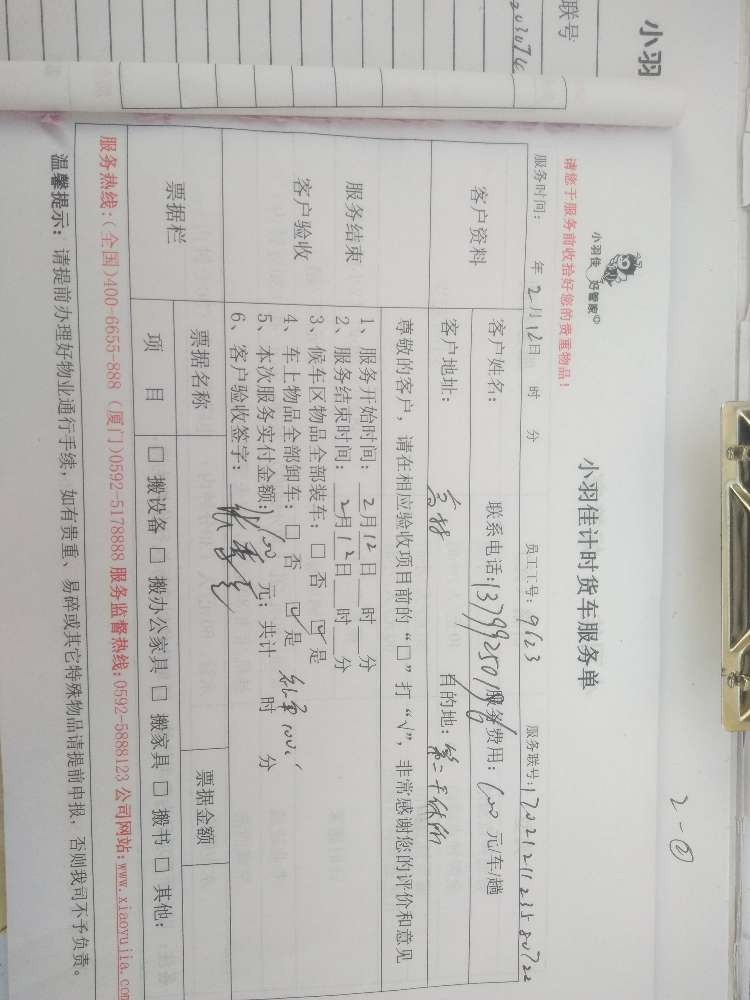 小羽
联号
2-②
小羽佳 好管家
小羽佳计时货车服务单
请您于服务前收拾好您的贵重物品!
服务时间: 年2月12日 时 分 员工工号: 9623 服务联号:
客户资料
客户姓名: 联系电话: 服务费用: 元/车/趟
客户地址: 目的地: 第二干休所
尊敬的客户,请在相应验收项目前的“□”打“√”,非常感谢您的评价和意见
服务结束
客户验收
1、服务开始时间: 2月12日 时 分
2、服务结束时间: 2月12日 时 分
3、候车区物品全部装车: □ 否 ☑ 是
4、车上物品全部卸车: □ 否 ☑ 是
5、本次服务实付金额: 元; 共计 时 分
6、客户验收签字:
票据栏
票据名称 票据金额
项 目 □ 搬设备 □ 搬办公家具 □ 搬家具 □ 搬书 □ 其他:
服务热线:(全国)400-6655-888 (厦门)0592-5178888 服务监督热线:0592-5888123 公司网站:www.xiaoyujia.com
温馨提示: 请提前办理好物业通行手续,如有贵重、易碎或其它特殊物品请提前申报,否则我司不予负责。